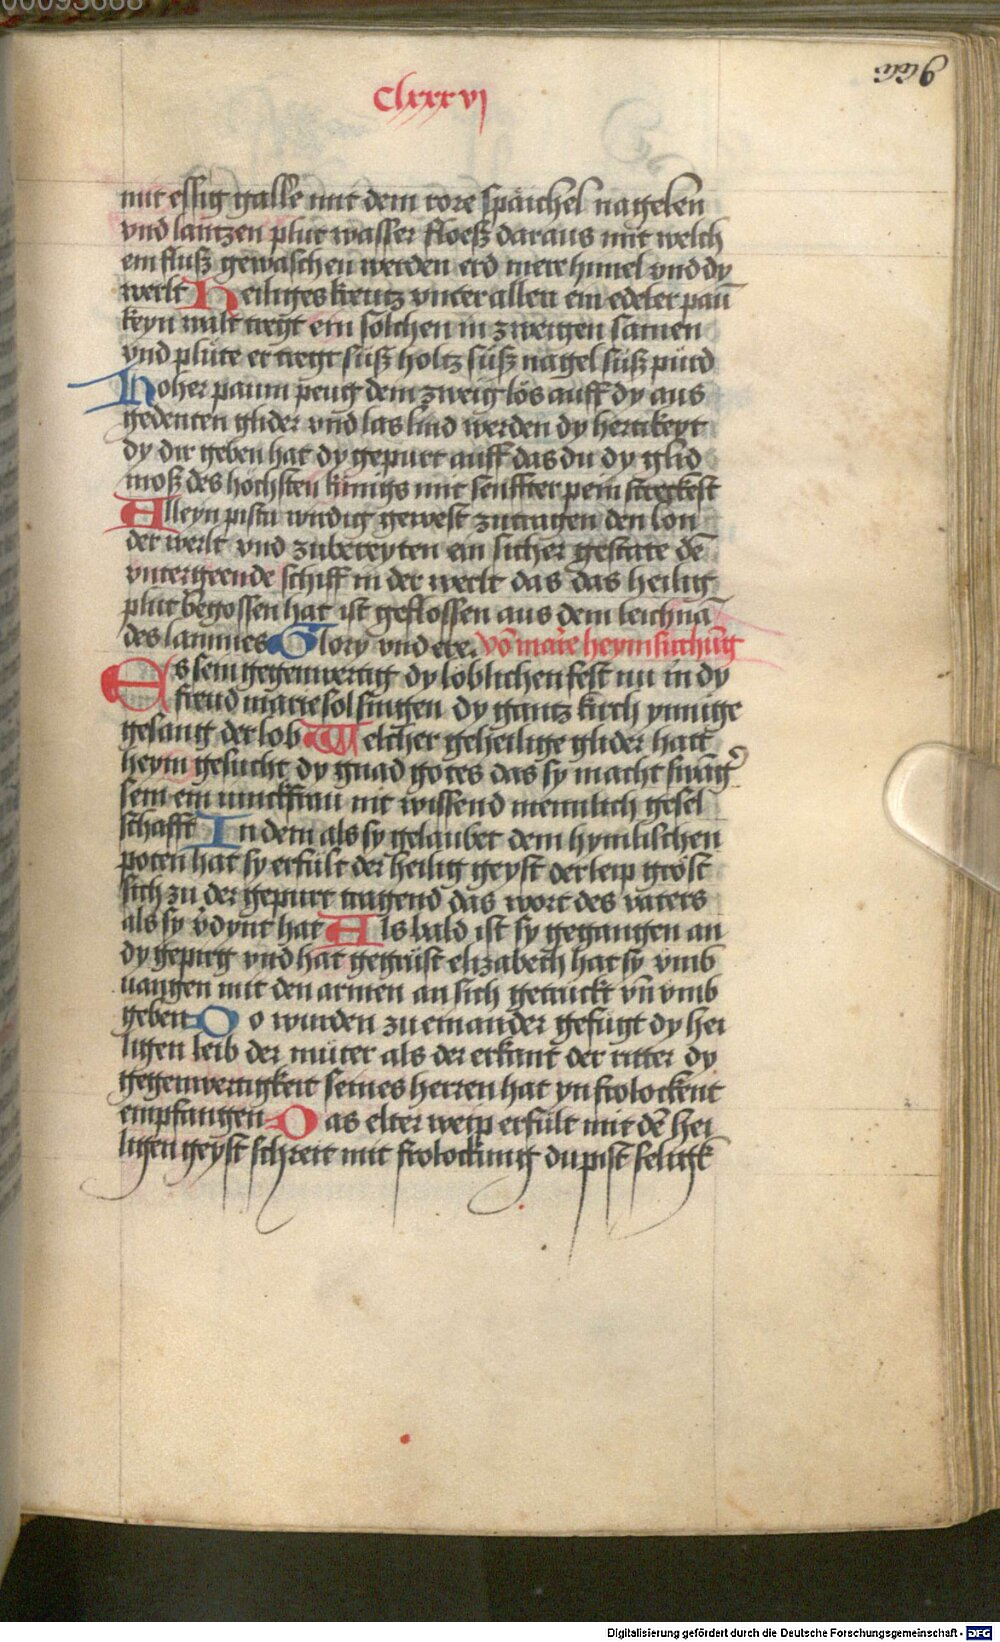 00093668
Clxxxvj
mit essig galle mit dem rore spaichel nageln
vnd lantzen plut wasser floeß daraus mit welch
em fluß gewaschen werden erd mere himel vnd dy
werlt Heiliges kreutz vnter allen ein edeler paū
keyn walt tregt ein solchen in zweigen samen
vnd plüte er tregt süß holtz süß nagel süß pürd
Hoher paum peug dein zweig lös auff dy aus
gedenten glider vnd las lind werden dy hertikeyt
dy dir geben hat dy gepurt auff das du dy glid
moß des höchsten künigs mit senffter pein streckest
Alleyn pistu wirdig gewest zutragen den lon
der werlt vnd zubereyten ein sicher gestate dē
vntergeende schiff in der werlt das das heilig
plut begossen hat ist geflossen aus dem leichnā
des lammes Glory vnd ere. Vō marie heymsuchūg
Es sein gegenwertig dy löblichen fest nu in dy
freud marie sol singen dy gantz kirch ynnige
gesang der lob Welcher geheilige glider hatt
heym gesucht dy gnad gotes das sy macht swāger
sein ein iunckfrau nit wissend mennlich gesel
schafft In dem als sy gelaubet dem hymlischen
poten hat sy erfült der heilig geyst der leip gröst
sich zu der gepurt tragend das wort des vaters
als sy v̄dynt hat Als bald ist sy gegangen an
dy gepirg vnd hat gegrüst elizabeth hat sy vmb
uangen mit den armen an sich getruckt vn̄ vmb
geben Do wurden zu einander gefügt dy hei
ligen leib der müter als der erkant der ritter dy
gegenwertigkeit seines herren hat yn frolockent
empfangen Das elter weip erfült mit dē hei
ligen geyst schreit mit frolockung du pist seligk
Digitalisierung gefördert durch die Deutsche Forschungsgemeinschaft - DFG